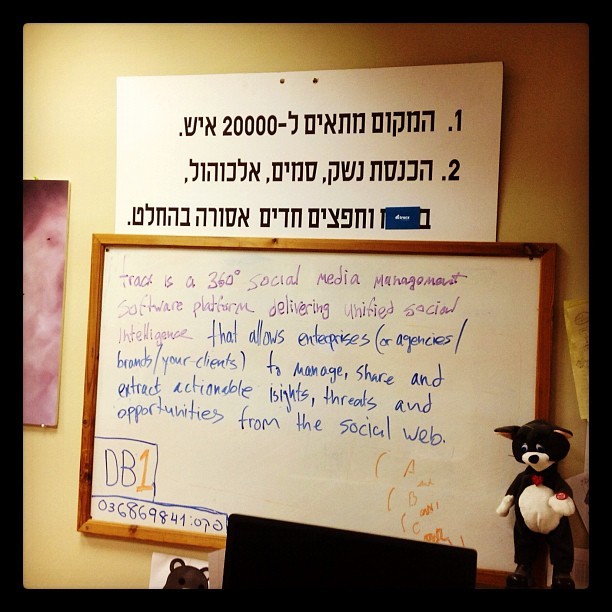 1. המקום מתאים ל-20000 איש.
2. הכנסת נשק, סמים, אלכוהול,
וחפצים חדים אסורה בהחלט.
track is a 360° social media management
software platform delivering unified social
intelligence that allows enterprises (or agencies/
brands/your-clients) to manage, share and
extract actionable isights, threats and
opportunities from the social web.
(A
(B
(C
DB1
פקס: 036869841